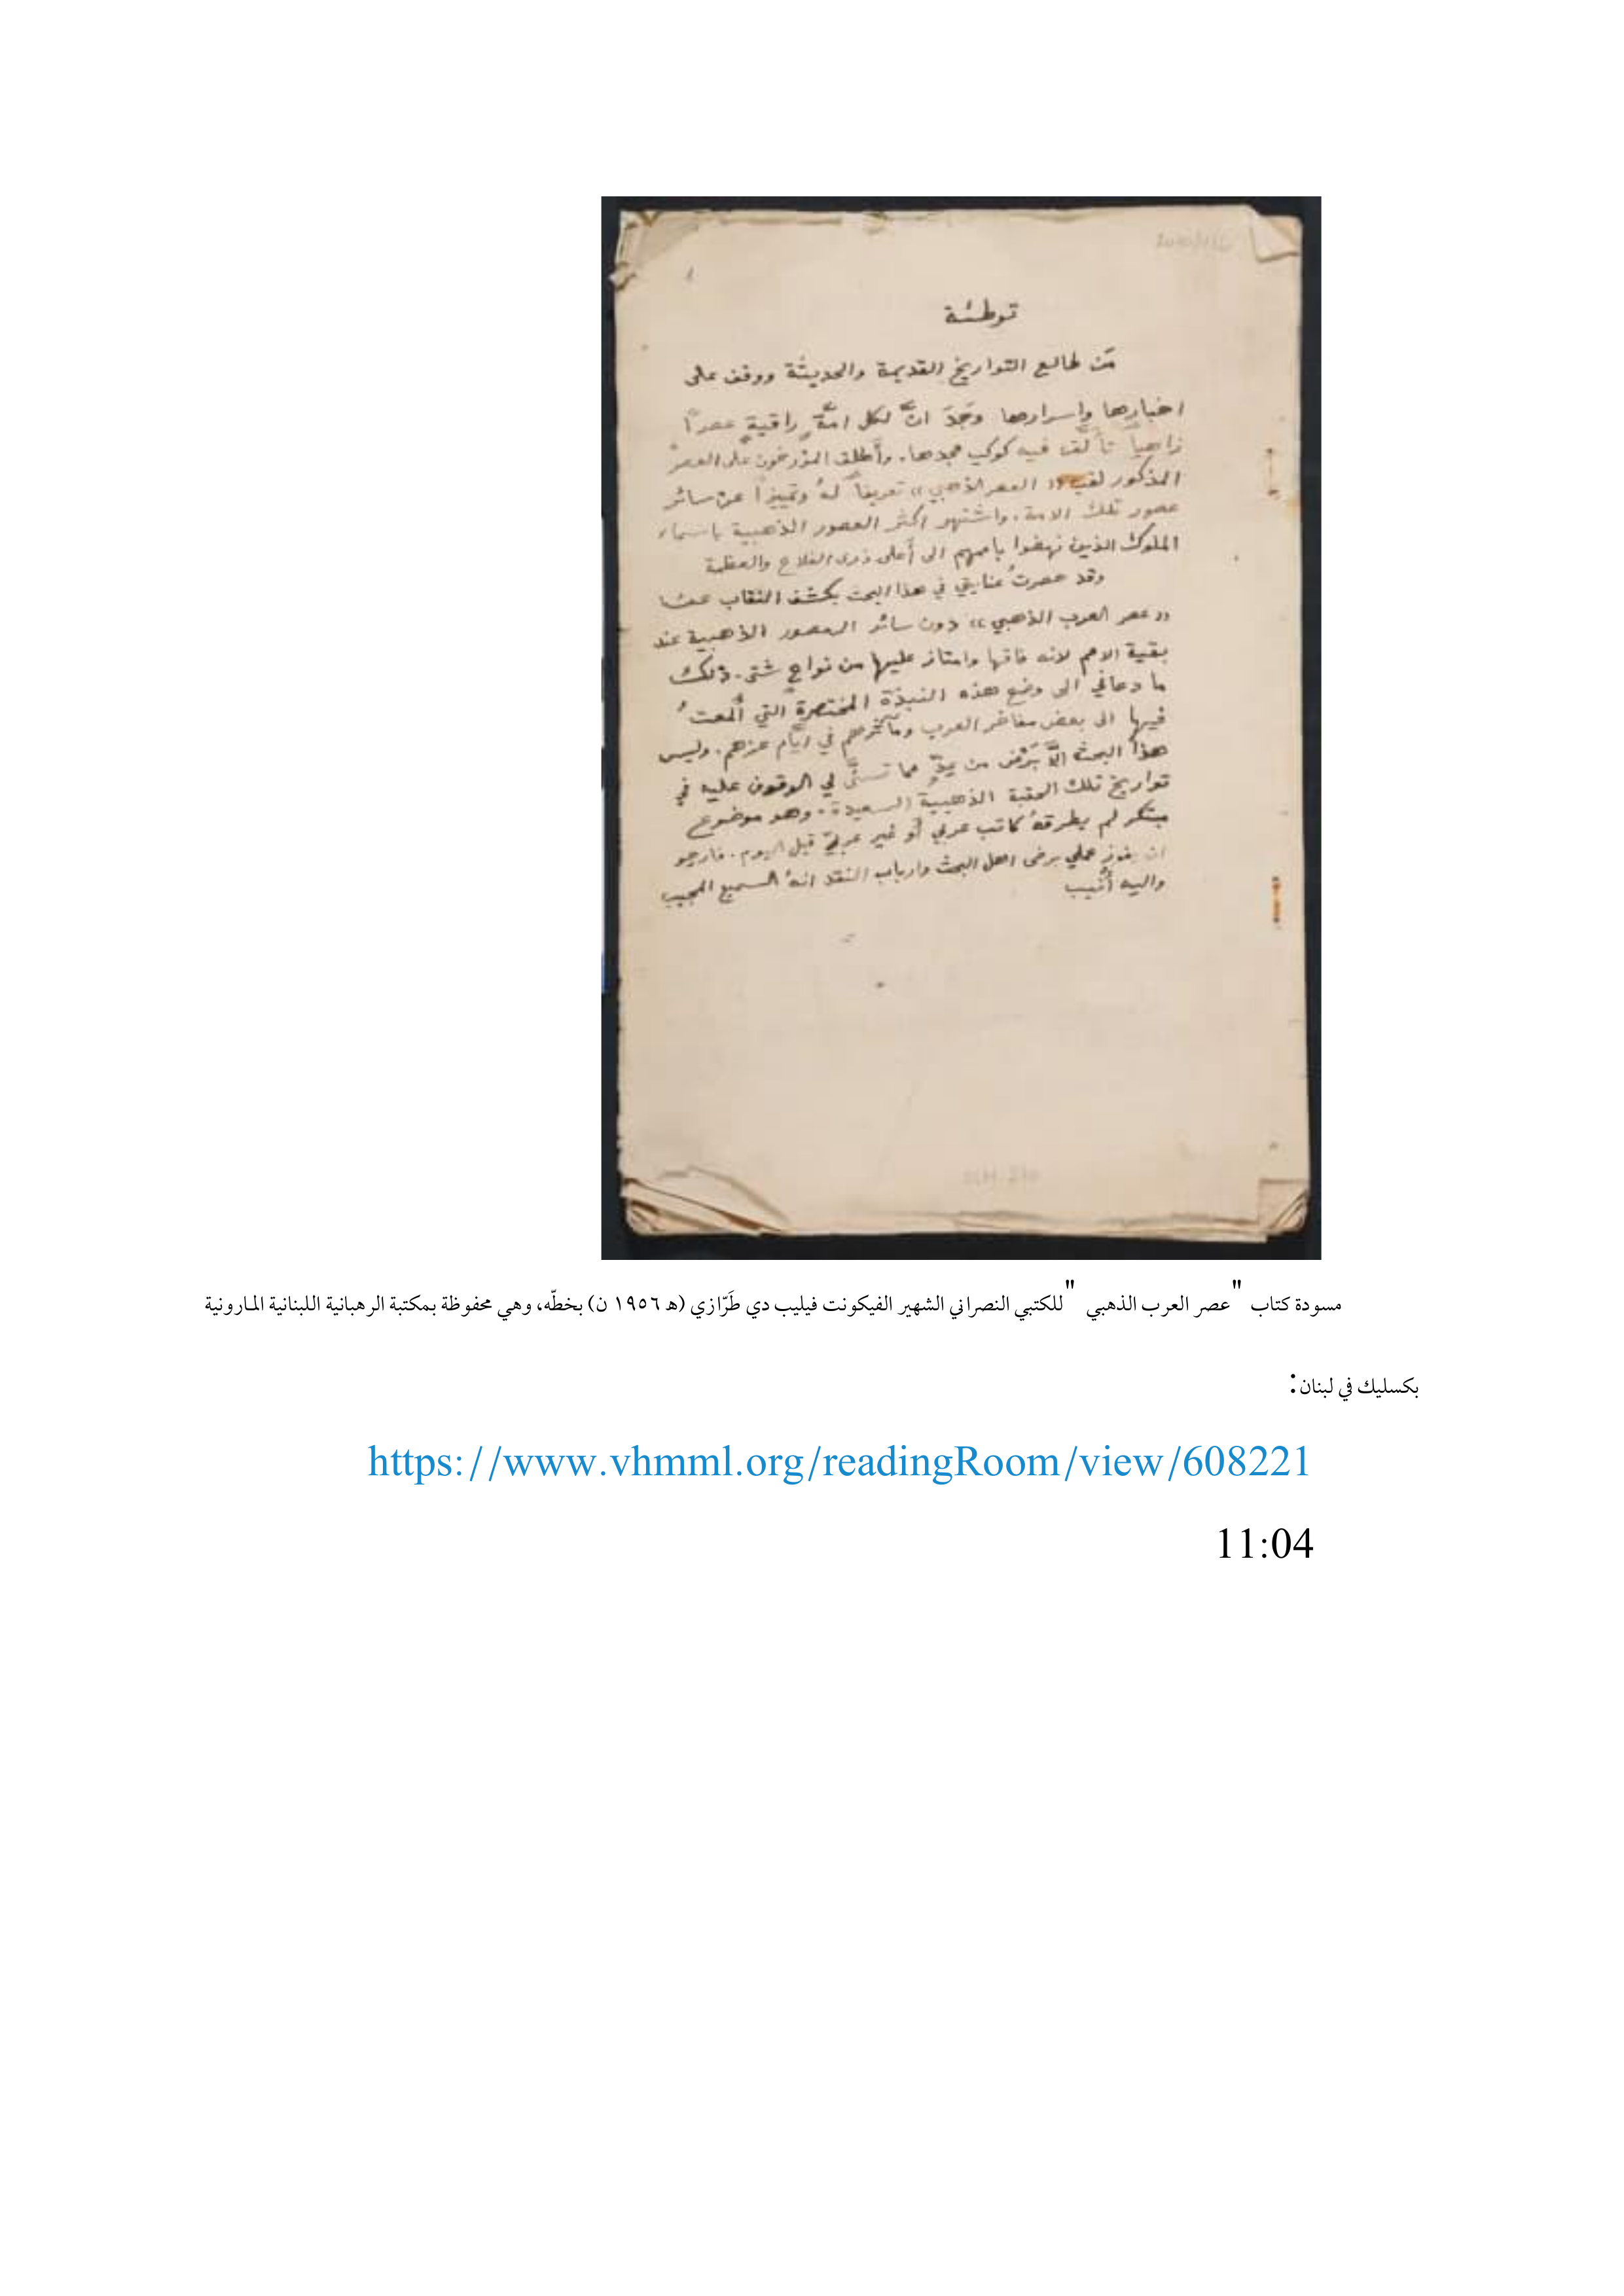 توطئة
مَن طالع التواريخ القديمة والحديثة ووقف على
اخبارها واسرارها وَجَدَ انَّ لكل امَّةٍ راقيةٍ عصراً
زاهياً تأَلَّق فيه كوكب مجدها. وأَطلق المؤرخون على العصر
المذكور لقب «العصر الذهبي» تعريفاً لهُ وتمييزاً عن سائر
عصور تلك الامة. واشتهر اكثر العصور الذهبية باسماء
الملوك الذين نهضوا باممهم الى أَعلى ذرى الفلاح والعظمة
وقد حصرتُ عنايتي في هذا البحث بكشف النقاب عن
«عصر العرب الذهبي» دون سائر العصور الذهبية عند
بقية الامم لانه فاقها وامتاز عليها من نواحٍ شتى. ذلك
ما دعاني الى وضع هذه النبذة المختصرة التي أَلمعتُ
فيها الى بعض مفاخر العرب ومآثرهم في ايَّام عزهم. وليس
هذا البحث الَّا بَرْض من عِدٍّ مما تسنَّى لي الوقوف عليه في
تواريخ تلك الحقبة الذهبية السعيدة. وهو موضوع
مبتكر لم يطرقهُ كاتب عربي أو غير عربيّ قبل اليوم. فارجو
ان يفوز عملي برضى اهل البحث وارباب النقد انهُ السميع المجيب
واليه أُنيب
مسودة كتاب "عصر العرب الذهبي" للكتبي النصراني الشهير الفيكونت فيليب دي طَرّازي (ه ١٩٥٦ ن) بخطّه، وهي محفوظة بمكتبة الرهبانية اللبنانية المارونية
بكسليك في لبنان:
https://www.vhmml.org/readingRoom/view/608221
11:04